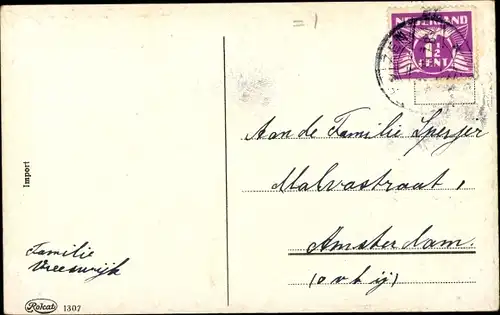 = 1
NEDERLAND
1 1/2
CENT
Aan de Familie Sperjer
Malvastraat 1
Amsterdam.
(o v h ij)
Import
Familie
Vreeswijk
Rokat 1307